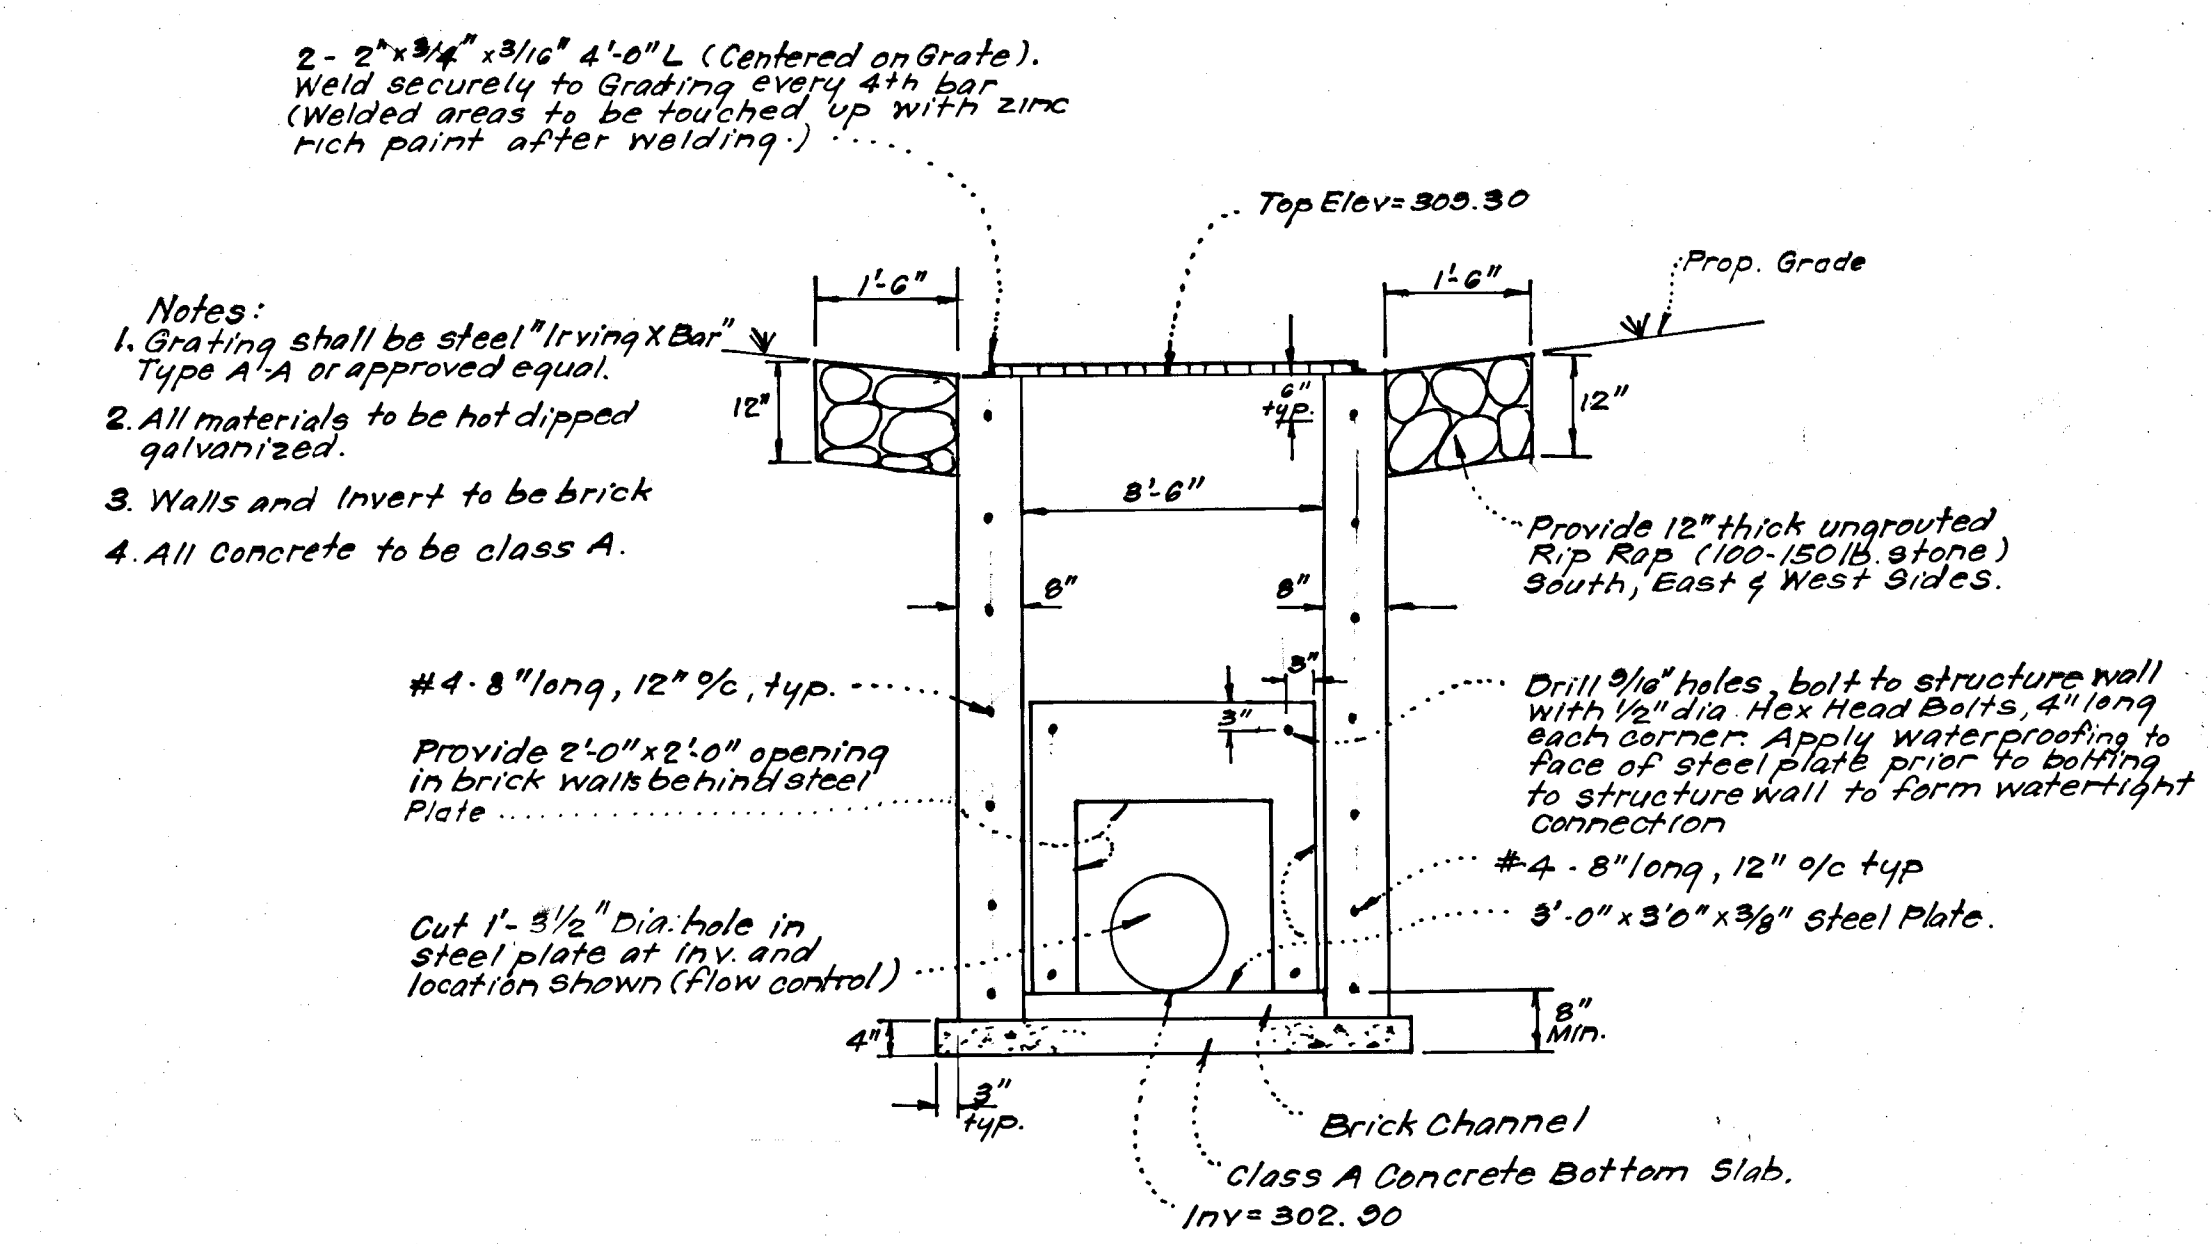 2 - 2" x 3/4" x 3/16" 4'-0" L (Centered on Grate).
Weld securely to Grating every 4th bar
(Welded areas to be touched up with zinc
rich paint after welding.)
Top Elev = 309.30
Prop. Grade
1'-6"
1'-6"
Notes:
1. Grating shall be steel "Irving X Bar"
Type A-A or approved equal.
2. All materials to be hot dipped
galvanized.
3. Walls and Invert to be brick
4. All Concrete to be class A.
12"
6"
typ.
12"
3'-6"
Provide 12" thick ungrouted
Rip Rap (100-150 lb. stone)
South, East & West Sides.
8"
8"
#4 - 8" long, 12" o/c, typ.
3"
3"
Drill 9/16" holes, bolt to structure wall
with 1/2" dia. Hex Head Bolts, 4" long
each corner. Apply waterproofing to
face of steel plate prior to bolting
to structure wall to form watertight
connection
Provide 2'-0" x 2'-0" opening
in brick walls behind steel
Plate
#4 - 8" long, 12" o/c typ
3'-0" x 3'0" x 3/8" Steel Plate.
Cut 1'-3 1/2" Dia. hole in
steel plate at inv. and
location shown (flow control)
4"
8"
Min.
3"
typ.
Brick Channel
Class A Concrete Bottom Slab.
Inv = 302.90